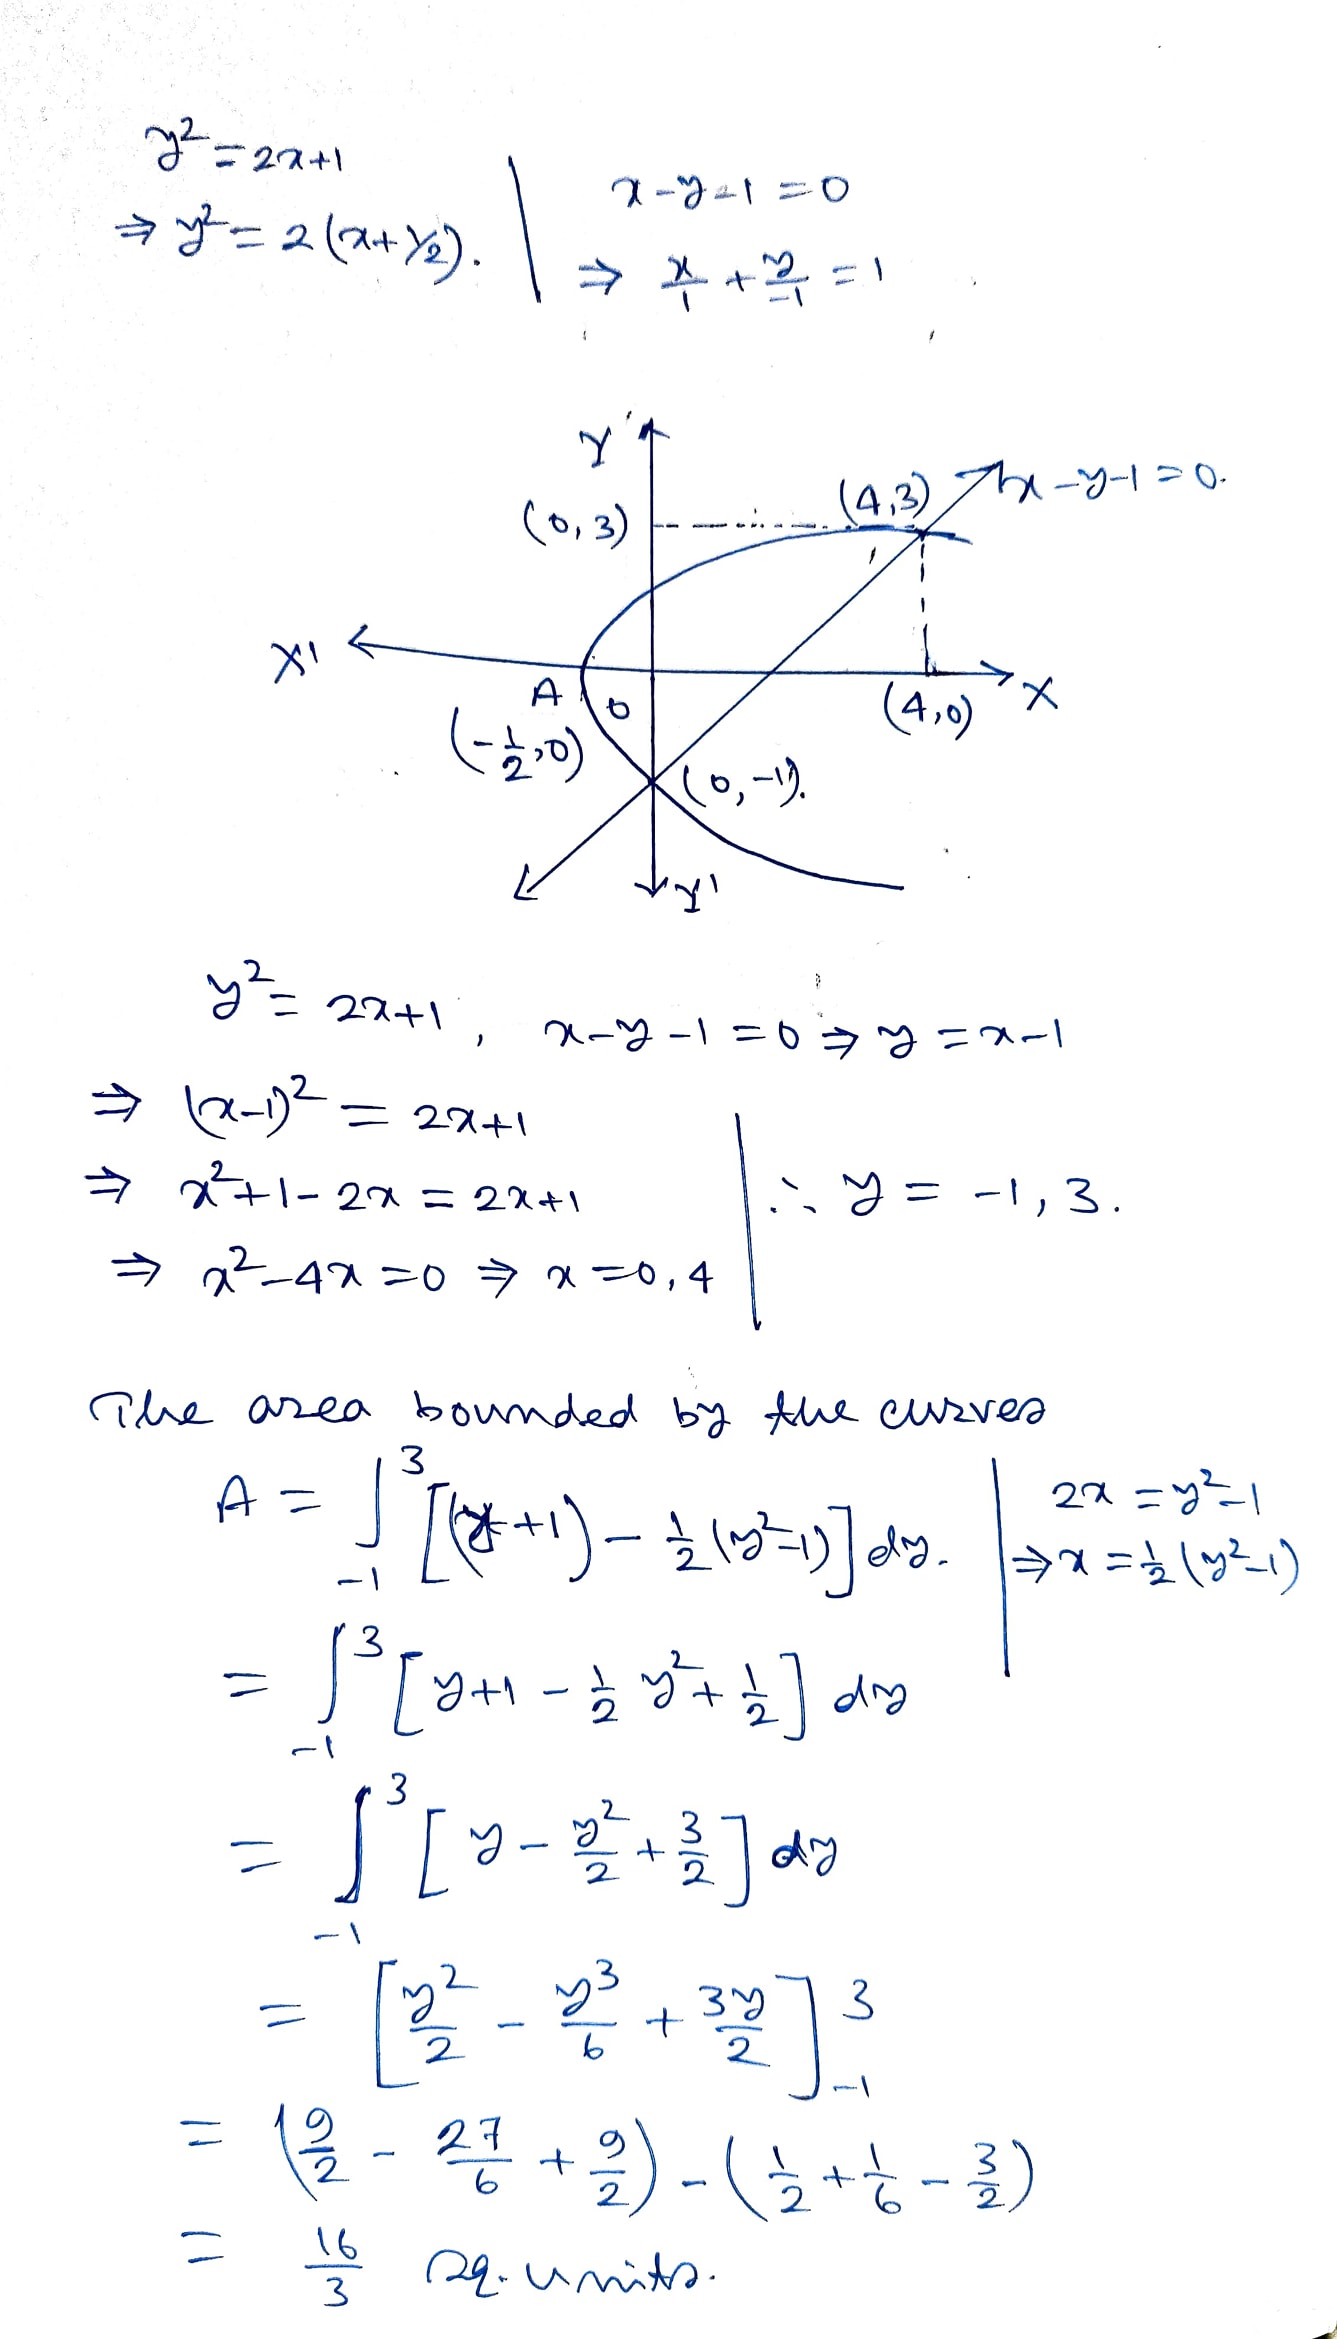 y² = 2x+1
⇒ y² = 2(x+½).
x-y-1 = 0
⇒ x/1 + y/-1 = 1
Y
(0,3)
(4,3)
x-y-1=0.
X'
A
(-1/2,0)
O
(4,0)
X
(0,-1).
Y'
y² = 2x+1, x-y-1 = 0 ⇒ y = x-1
⇒ (x-1)² = 2x+1
⇒ x²+1-2x = 2x+1
⇒ x²-4x=0 ⇒ x=0,4
∴ y = -1, 3.
The area bounded by the curves
A = ∫_{-1}^{3} [(y+1) - 1/2 (y²-1)] dy.
2x = y²-1
⇒ x = 1/2 (y²-1)
= ∫_{-1}^{3} [y+1 - 1/2 y² + 1/2] dy
= ∫_{-1}^{3} [y - y²/2 + 3/2] dy
= [y²/2 - y³/6 + 3y/2]_{-1}^{3}
= (9/2 - 27/6 + 9/2) - (1/2 + 1/6 - 3/2)
= 16/3 sq. units.